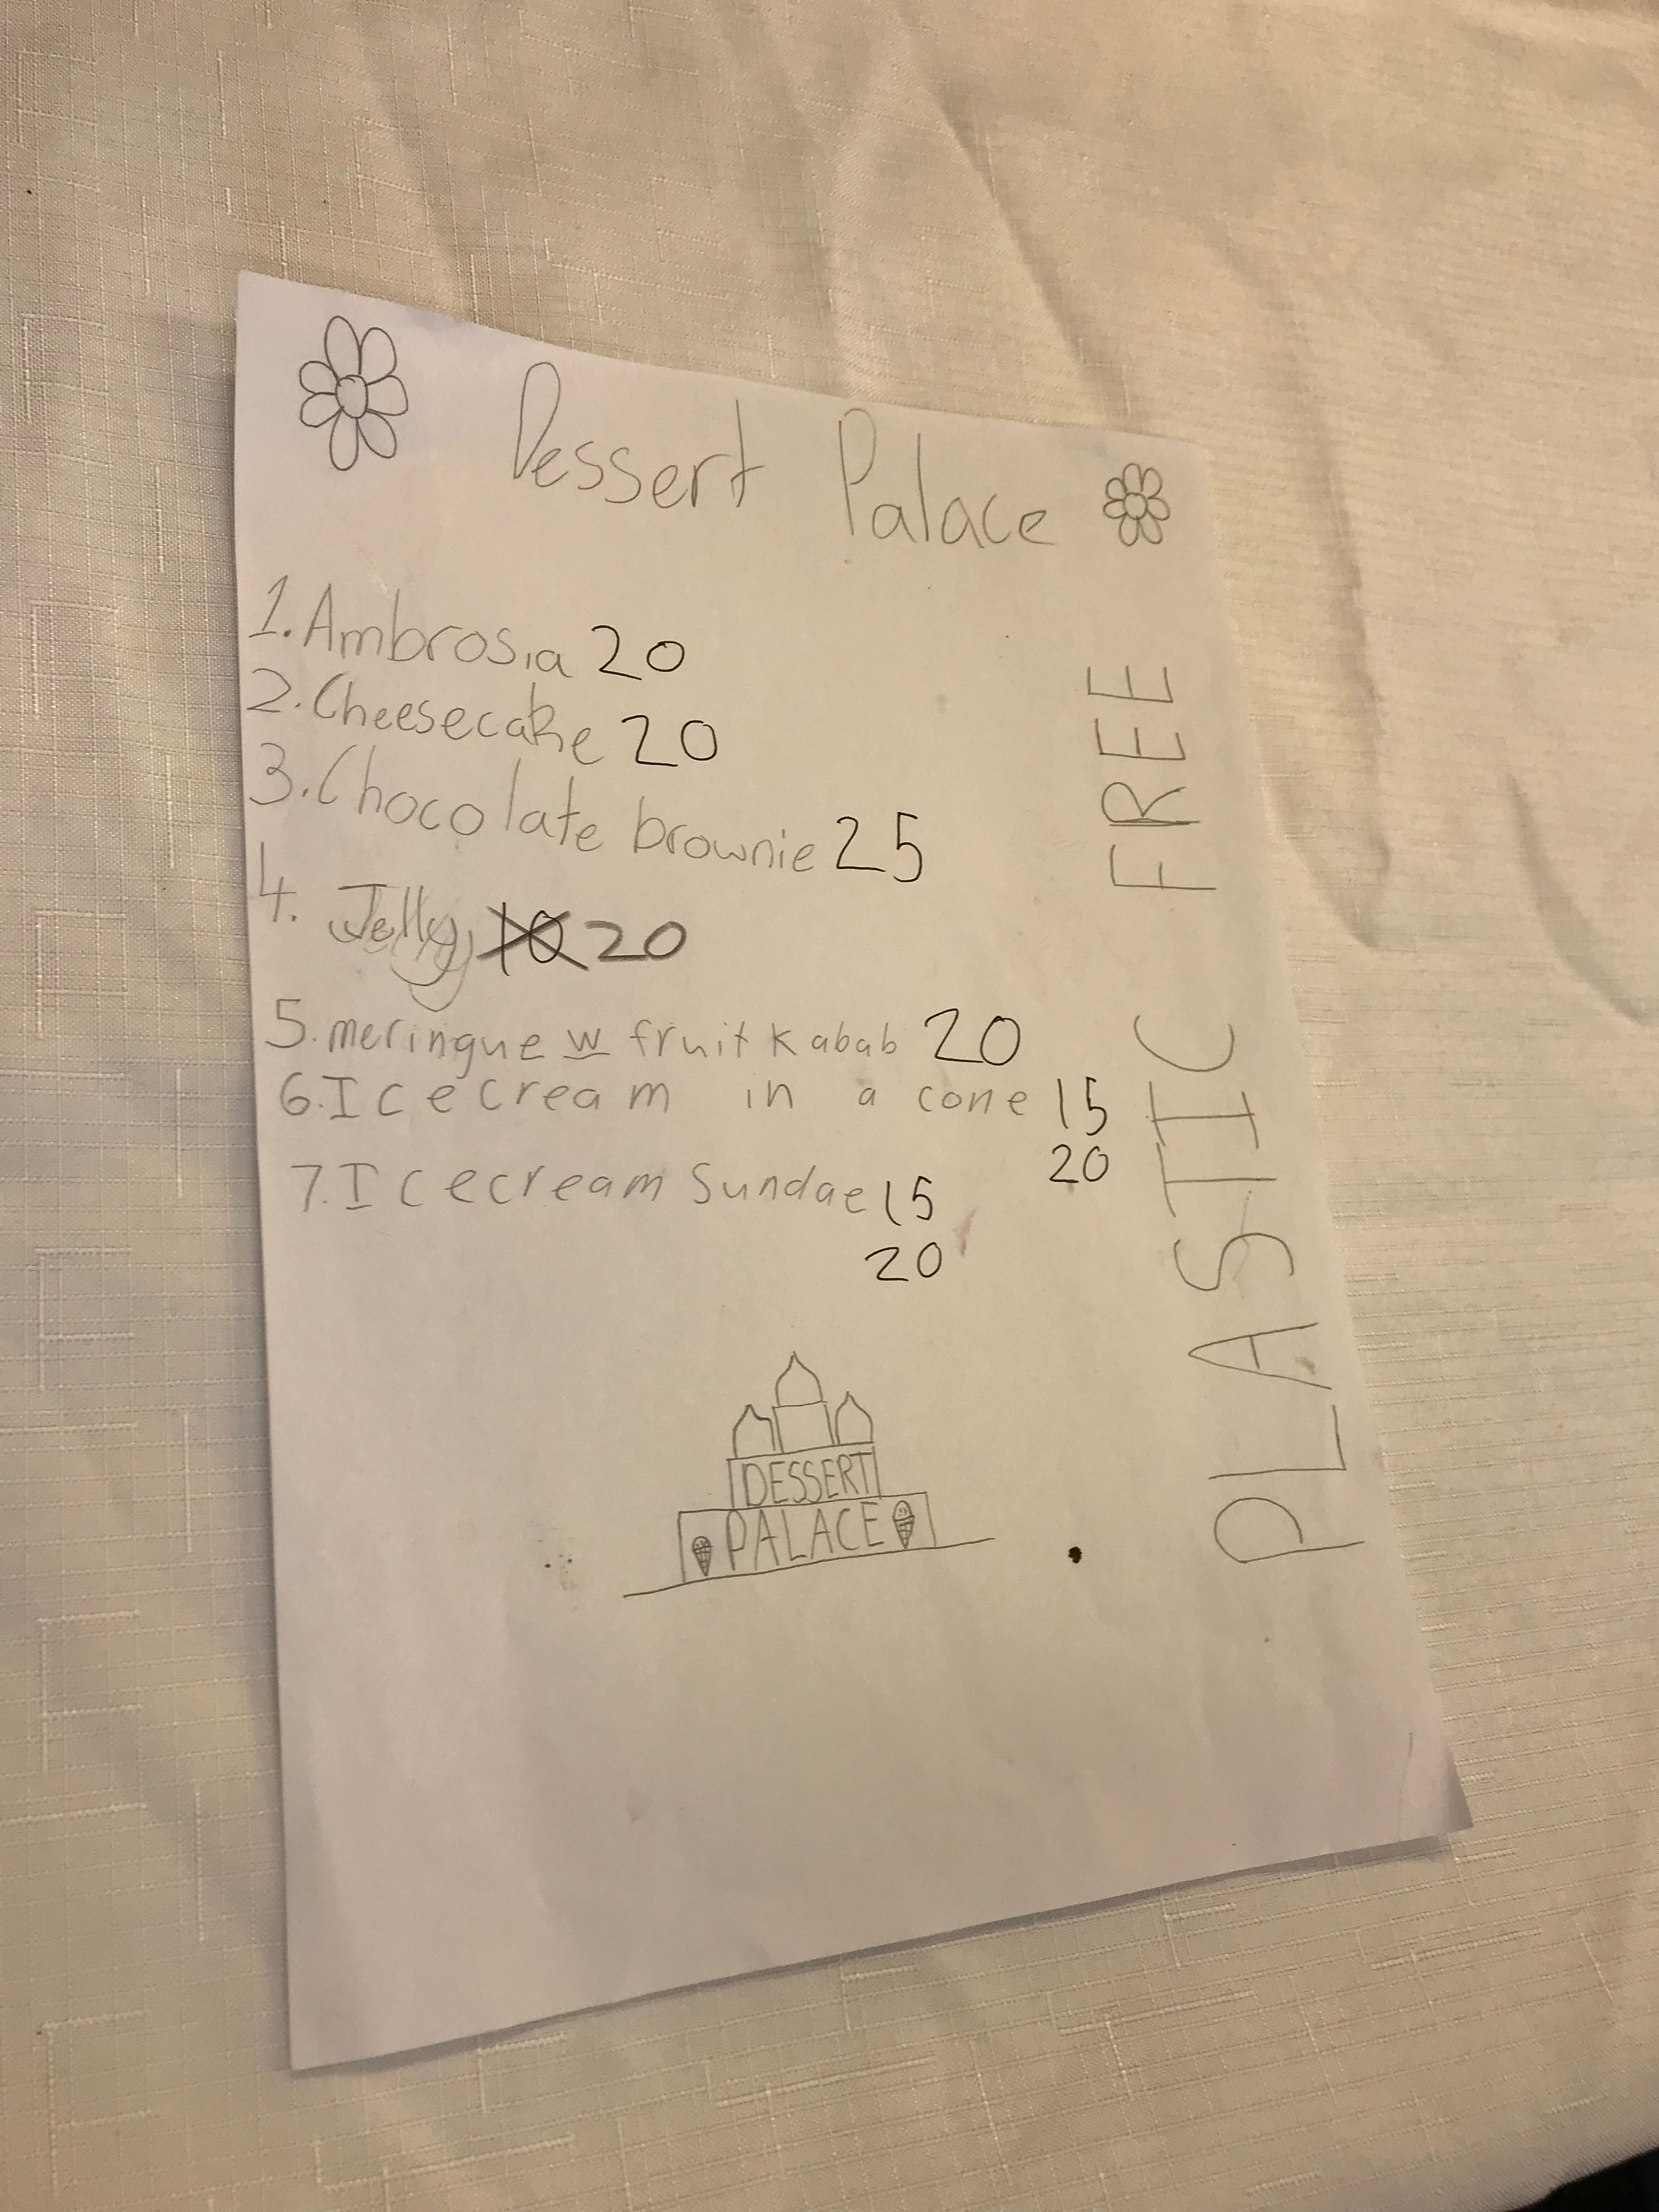 Dessert Palace
1. Ambrosia 20
2. Cheesecake 20
3. Chocolate brownie 25
4. Jelly 10 20
5. meringue w fruit kabab 20
6. Icecream in a cone 15
20
7. Icecream Sundae 15
20
DESSERT
PALACE
PLASTIC FREE